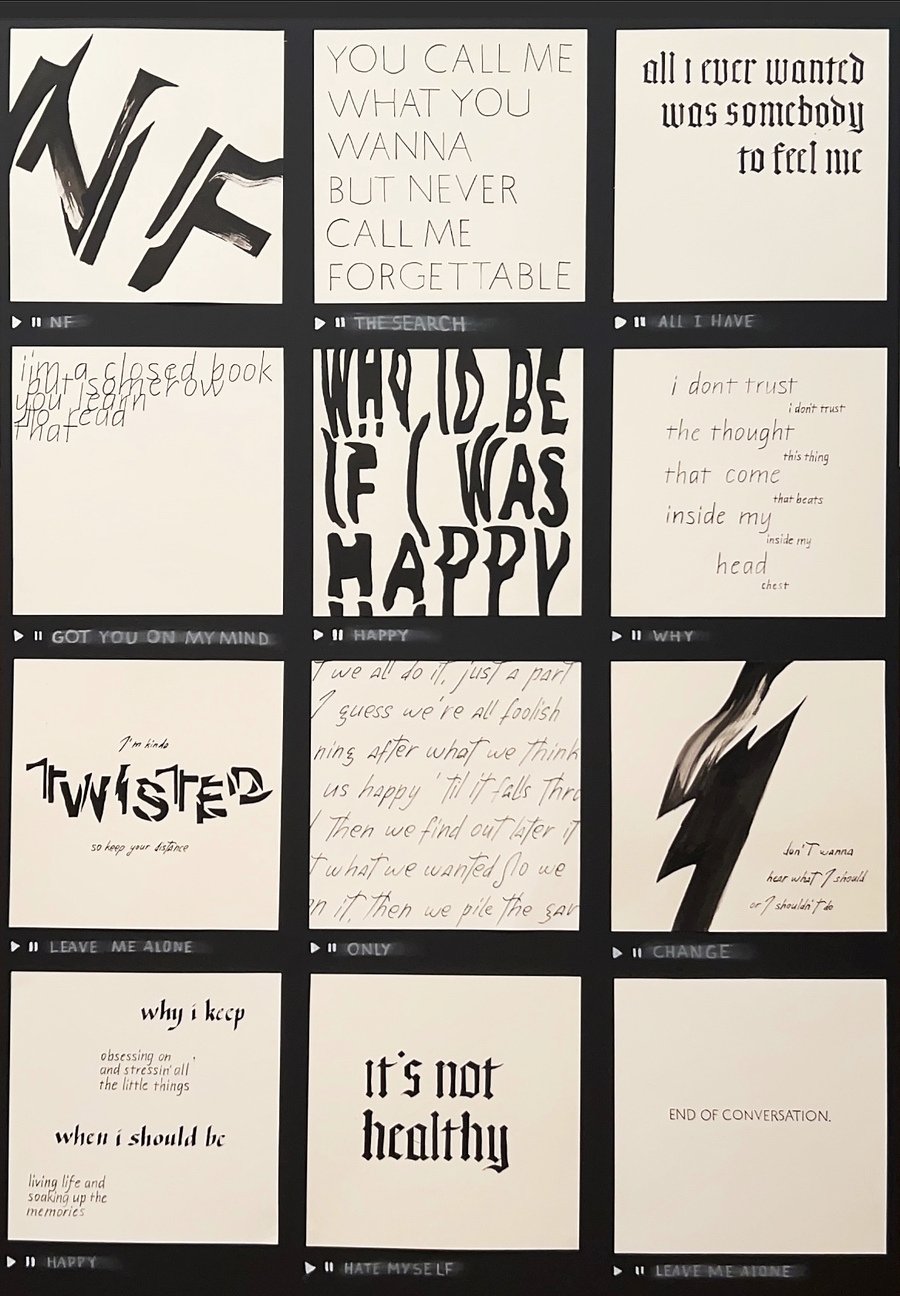 NF
NF
YOU CALL ME
WHAT YOU
WANNA
BUT NEVER
CALL ME
FORGETTABLE
THE SEARCH
all i ever wanted
was somebody
to feel me
ALL I HAVE
i'm a closed book
but somerow
you learn
to read
that
GOT YOU ON MY MIND
WHO ID BE
IF I WAS
HAPPY
HAPPY
i dont trust
i don't trust
the thought
this thing
that come
that beats
inside my
inside my
head
chest
WHY
I'm kinda
TWISTED
so keep your distance
LEAVE ME ALONE
t we all do it, just a part
I guess we're all foolish
ning after what we think
us happy 'til it falls thro
Then we find out later it
t what we wanted So we
on it, Then we pile the gar
ONLY
don't wanna
hear what I should
or I shouldn't do
CHANGE
why i keep
obsessing on
and stressin' all
the little things
when i should be
living life and
soaking up the
memories
HAPPY
it's not
healthy
HATE MYSELF
END OF CONVERSATION.
LEAVE ME ALONE